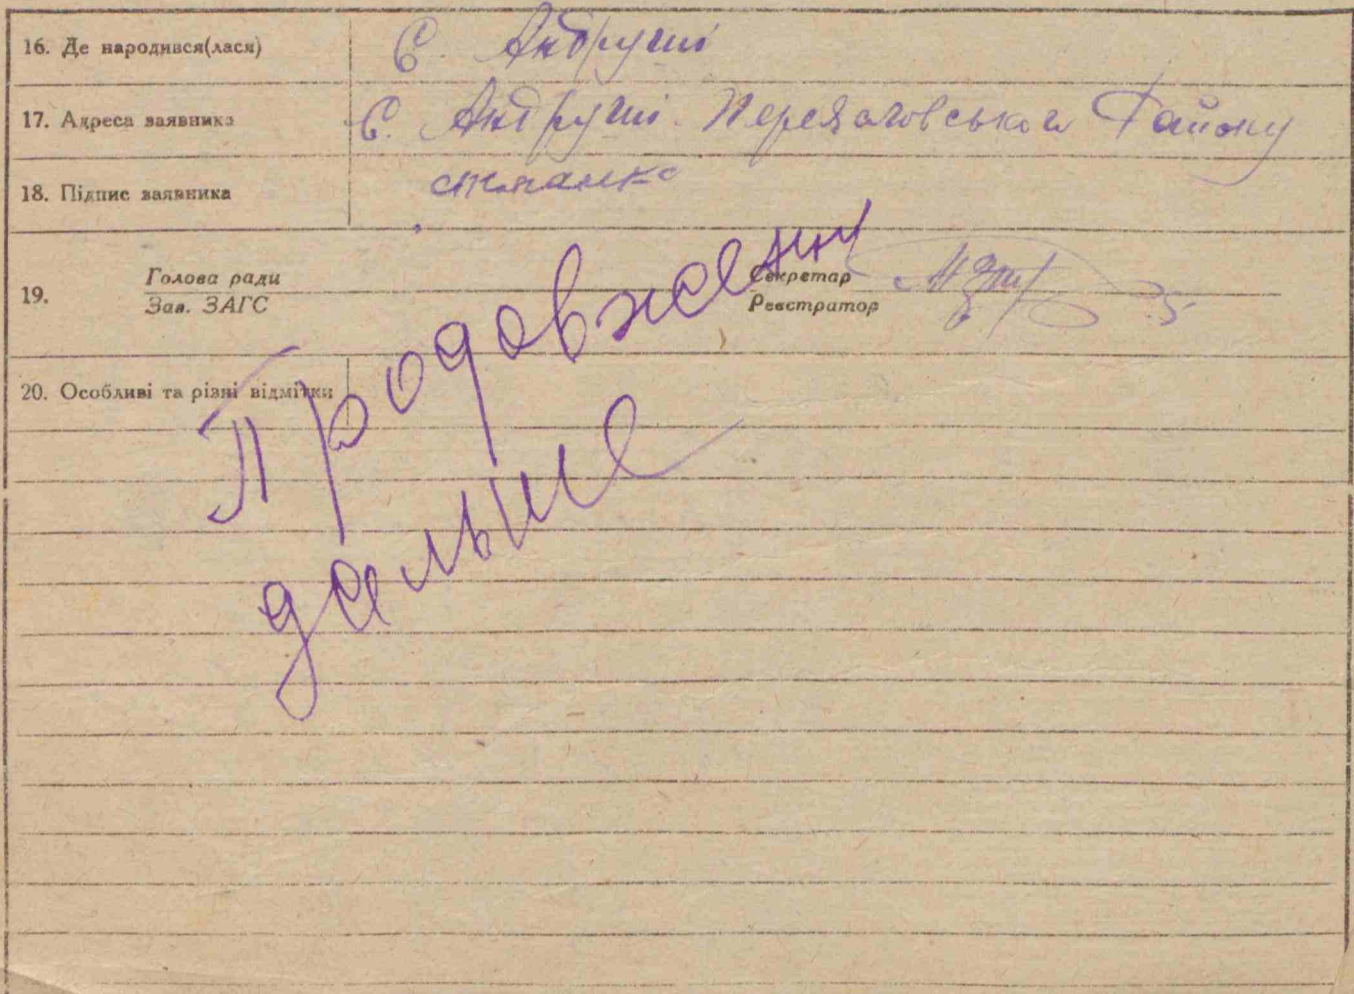 16. Де народився(лася) С. Андруші
17. Адреса заявника С. Андруші Переяславського Району
18. Підпис заявника
19. Голова ради Секретар
Зав. ЗАГС Реєстратор
20. Особливі та різні відмітки
Продовжений
дальше